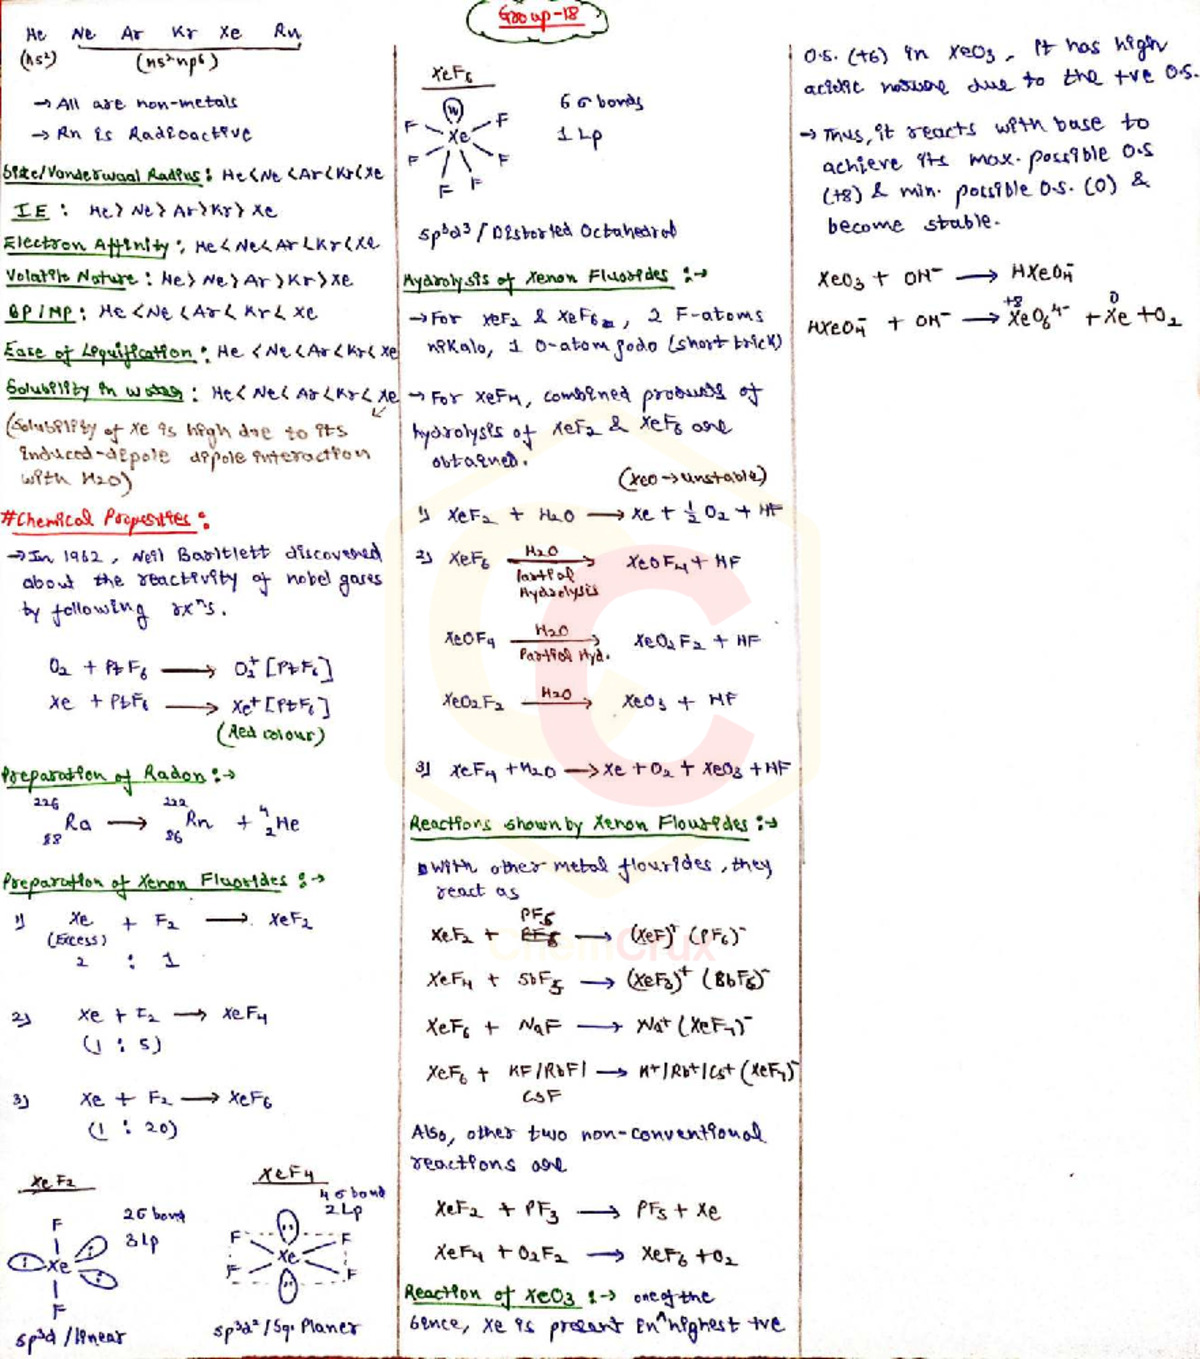 Group-18
He Ne Ar Kr Xe Rn
(ns²) (ns²np⁶)
→ All are non-metals
→ Rn is Radioactive
Size/Vanderwaal Radius: He<Ne<Ar<Kr<Xe
IE : He> Ne> Ar> Kr> Xe
Electron Affinity: He<Ne<Ar<Kr<Xe
Volatile Nature: He> Ne> Ar> Kr> Xe
BP/MP: He<Ne<Ar<Kr<Xe
Ease of Liquification: He<Ne<Ar<Kr<Xe
Solubility in water: He<Ne<Ar<Kr<Xe
(Solubility of Xe is high due to its
induced-dipole dipole interaction
with H₂O)
#Chemical Properties:
→ In 1962, Neil Bartlett discovered
about the reactivity of nobel gases
by following rxⁿs.
O₂ + PtF₆ → O₂⁺[PtF₆]
Xe + PtF₆ → Xe⁺[PtF₆]
(Red colour)
Preparation of Radon:→
²²⁶₈₈Ra → ²²²₈₆Rn + ⁴₂He
Preparation of Xenon Fluorides:→
1) Xe + F₂ → XeF₂
(Excess)
2 : 1
2) Xe + F₂ → XeF₄
(1 : 5)
3) Xe + F₂ → XeF₆
(1 : 20)
XeF₂
2σ bond
3 lp
F
Xe
F
sp³d/linear
XeF₄
4σ bond
2 Lp
F F
Xe
F F
sp³d²/Sq. Planer
XeF₆
6σ bonds
1 Lp
F F
Xe
F F
F F
sp³d³/Distorted Octahedral
Hydrolysis of Xenon Fluorides:→
→ For XeF₂ & XeF₆, 2 F-atoms
nikalo, 1 O-atom jodo (short trick)
→ For XeF₄, combined products of
hydrolysis of XeF₂ & XeF₆ are
obtained.
(XeO→unstable)
1) XeF₂ + H₂O → Xe + ½O₂ + HF
2) XeF₆ H₂O → XeOF₄ + HF
Partial
Hydrolysis
XeOF₄ H₂O → XeO₂F₂ + HF
Partial Hyd.
XeO₂F₂ H₂O → XeO₃ + HF
3) XeF₄ + H₂O → Xe + O₂ + XeO₃ + HF
Reactions shown by Xenon Flourides:→
With other metal flourides, they
react as
PF₅
XeF₂ + → (XeF)⁺(PF₆)⁻
XeF₄ + SbF₅ → (XeF₃)⁺(SbF₆)⁻
XeF₆ + NaF → Na⁺(XeF₇)⁻
XeF₆ + KF/RbF/ → K⁺/Rb⁺/Cs⁺(XeF₇)⁻
CsF
Also, other two non-conventional
reactions are
XeF₂ + PF₃ → PF₅ + Xe
XeF₄ + O₂F₂ → XeF₆ + O₂
Reaction of XeO₃:→ one of the
Sence, Xe is present in^highest +ve
O.S. (+6) in XeO₃, it has high
acidic nature due to the +ve O.S.
→ Thus, it reacts with base to
achieve its max. possible O.S
(+8) & min. possible O.S. (0) &
become stable.
XeO₃ + OH⁻ → HXeO₄⁻
+8 0
HXeO₄⁻ + OH⁻ → XeO₆⁴⁻ + Xe + O₂
ChemCrux